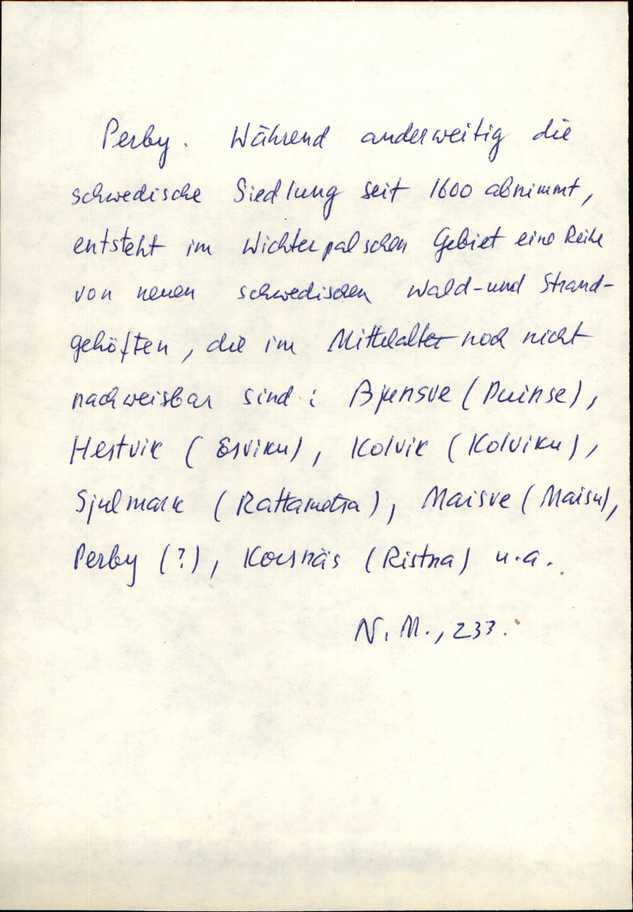 Perby. Während anderweitig die
schwedische Siedlung seit 1600 abnimmt,
entsteht im Wichterpalschen Gebiet eine Reihe
von neuen schwedischen Wald- und Strand-
gehöften, die im Mittelalter noch nicht
nachweisbar sind: (Puinse),
Hestvik (Esviku), Kolvik (Kolviku),
Sjulmark (Rattametsa), Maisve (Maisu),
Perby (?), Korsnäs (Ristna) u.a.
N. M., 233.